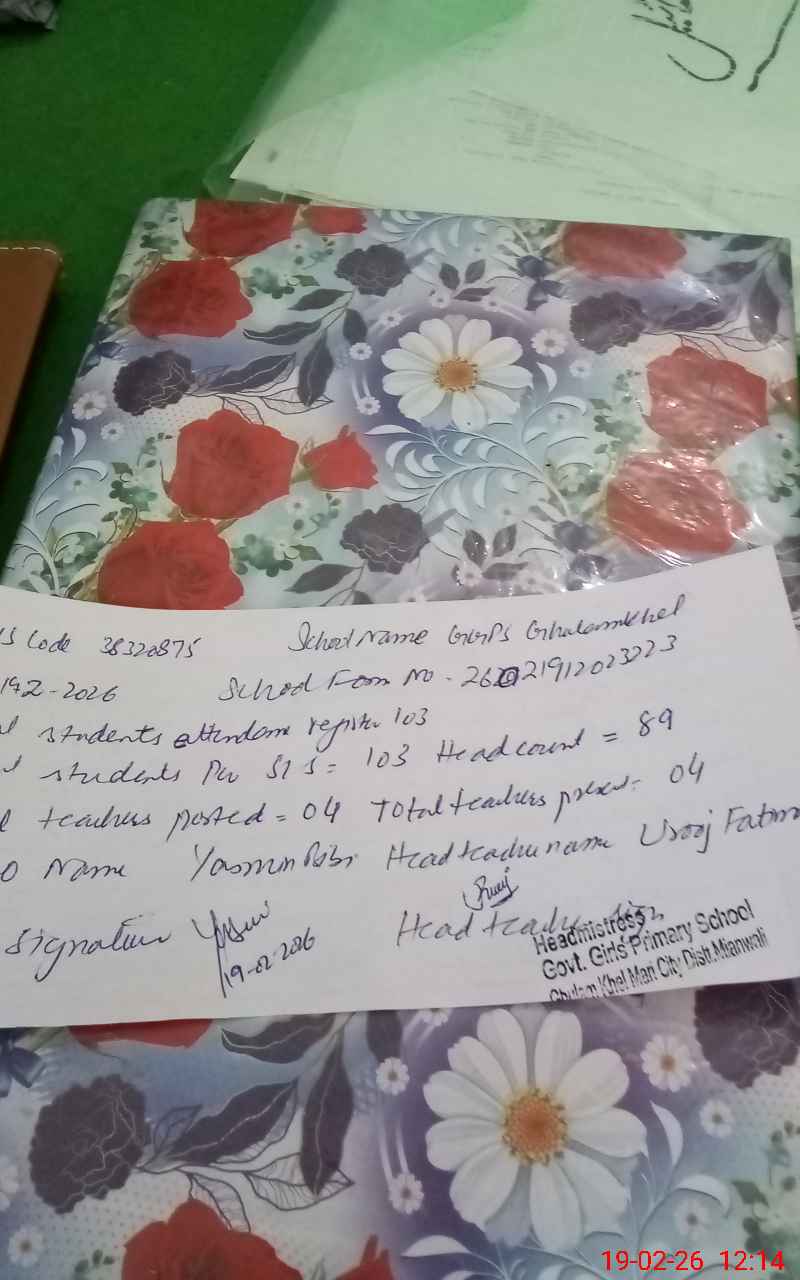 S Code 38320875 School Name GGPS Ghulamkhel
192-2026 School Form No - 26021912023223
l students attendance register 103
l students Per SIS = 103 Head count = 89
l teachers posted = 04 Total teachers present = 04
O Name Yasmin Bibi Head teacher name Urooj Fatima
Signature
19-02-2026
Head teacher
Headmistress
Govt. Girls Primary School
Ghulam Khel Mari City Distt. Mianwali
19-02-26 12:14